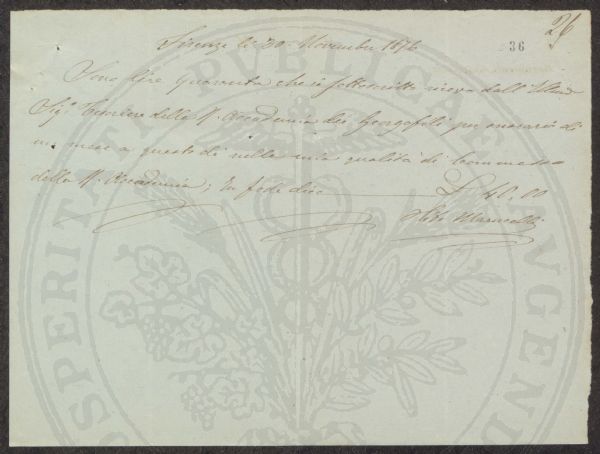 26
36
Firenze li 30 November 1876
Sono lire quaranta che io sottoscritto ricevo dall' Illmo
Sigr Tesoriere della R. Accademia dei Georgofili per onorario di
un mese a questo dì nella mia qualità di Commesso
della R. Accademia; In fede dico £ 40,00
PROSPERITATI PUBLICAE AUGENDAE